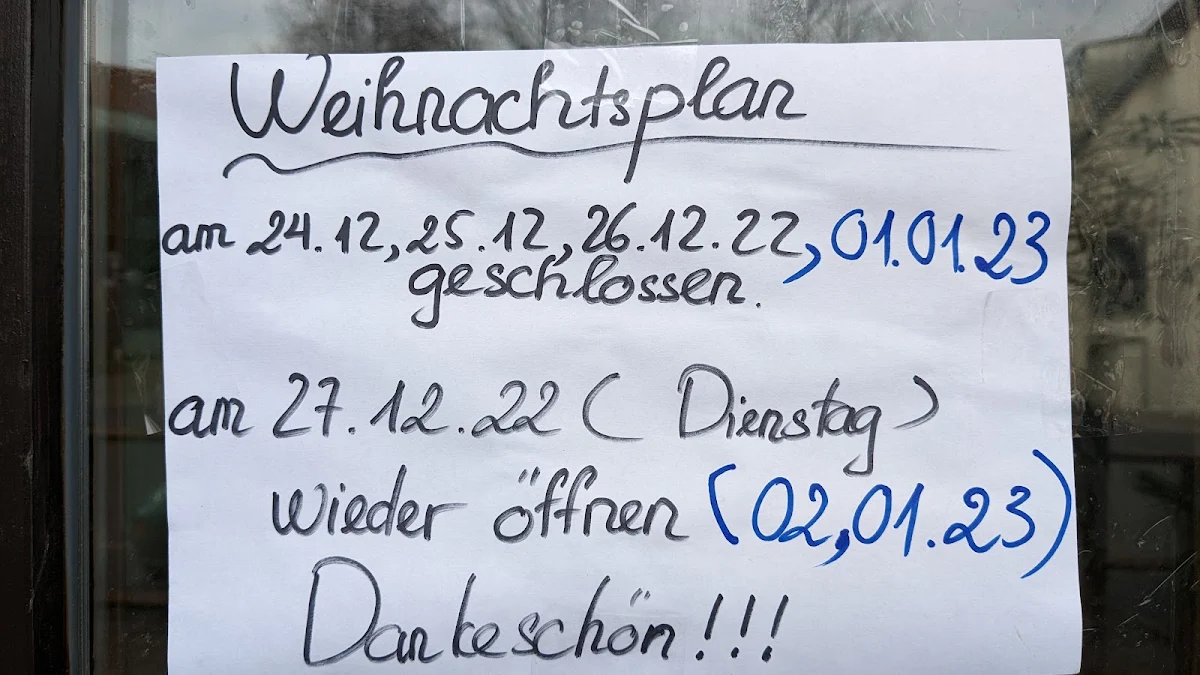 Weihnachtsplan
am 24.12, 25.12, 26.12.22, 01.01.23
geschlossen.
am 27.12.22 ( Dienstag )
wieder öffnen (02,01.23)
Dankeschön!!!